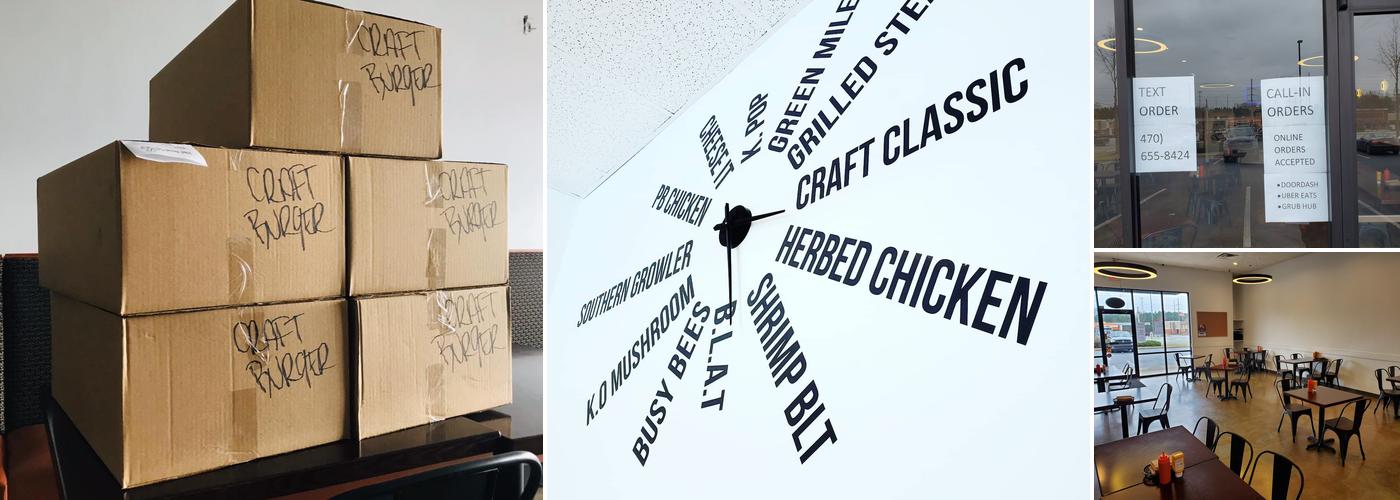 CRAFT
BURGER
CRAFT
BURGER
CRAFT
BURGER
CRAFT
BURGER
CRAFT
BURGER
GREEN MILE
GRILLED
CRAFT CLASSIC
HERBED CHICKEN
SHRIMP BLT
B.L.A.T
BUSY BEES
K.O MUSHROOM
SOUTHERN GROWLER
PB CHICKEN
CHEESE IT
K. POP
TEXT
ORDER
470)
655-8424
CALL-IN
ORDERS
ONLINE
ORDERS
ACCEPTED
•DOORDASH
•UBER EATS
•GRUB HUB